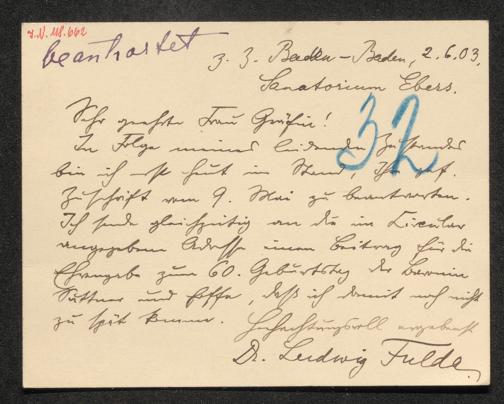 I.N. 118.662
beantwortet
z. Z. Baden-Baden, 2.6.03.
Sanatorium Ebers.
32
Sehr geehrte Frau Gräfin!
In Folge meines leidenden Zustandes
bin ich erst heut im Stand Ihre gef.
Zuschrift vom 9. Mai zu beantworten.
Ich sende gleichzeitig an die im Circular
angegebene Adresse einen Beitrag für die
Ehrengabe zum 60. Geburtstag der Baronin
Suttner und hoffe, daß ich damit noch nicht
zu spät komme. Hochachtungsvoll ergebenst
Dr. Ludwig Fulda.